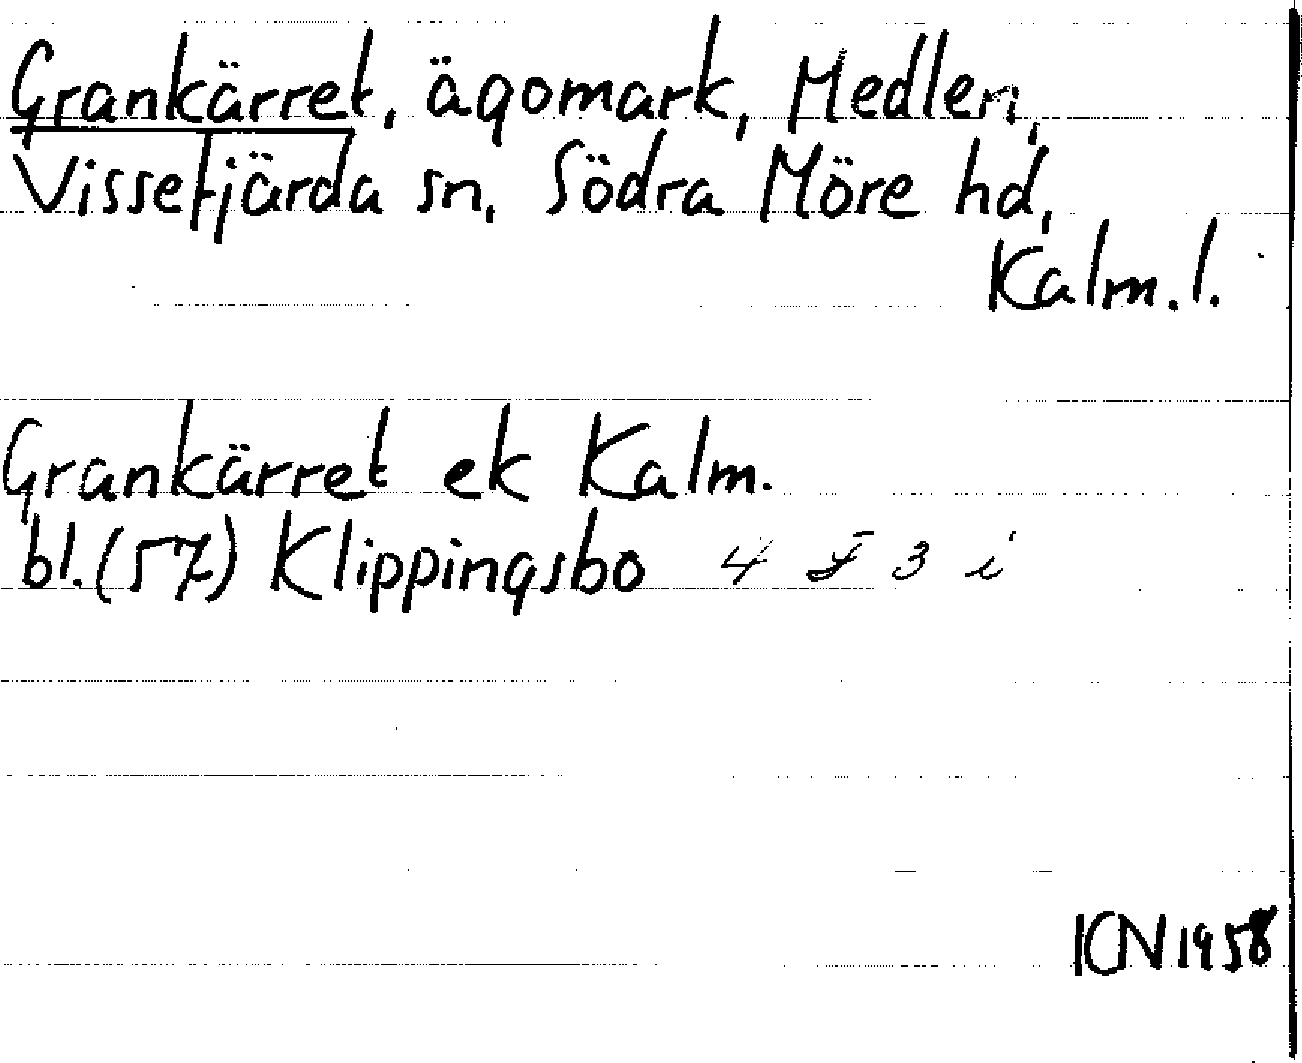 Grankärret, ägomark, Medlen,
Vissefjärda sn, Södra Möre hd,
Kalm. l.
Grankärret ek Kalm.
bl. (57) Klippingsbo 4 F 3 i
KN 1958